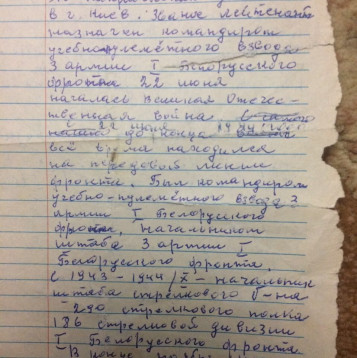 в г. Киев. Звание лейтенант
назначен командиром
учебно-пулемётного взвода
3 армии I Белорусского
фронта 22 июня
началась Великая Отече-
ственная война с самого
до конца
всё время находился
на передовой линии
фронта. Был командиром
учебно-пулемётного взвода 3
армии I Белорусского
фронта, начальником
штаба 3 армии I
Белорусского фронта,
с 1943-1944/X - начальник
штаба стрелкового б-на
290 стрелкового полка
186 стрелковой дивизии
I Белорусского фронта
В конце